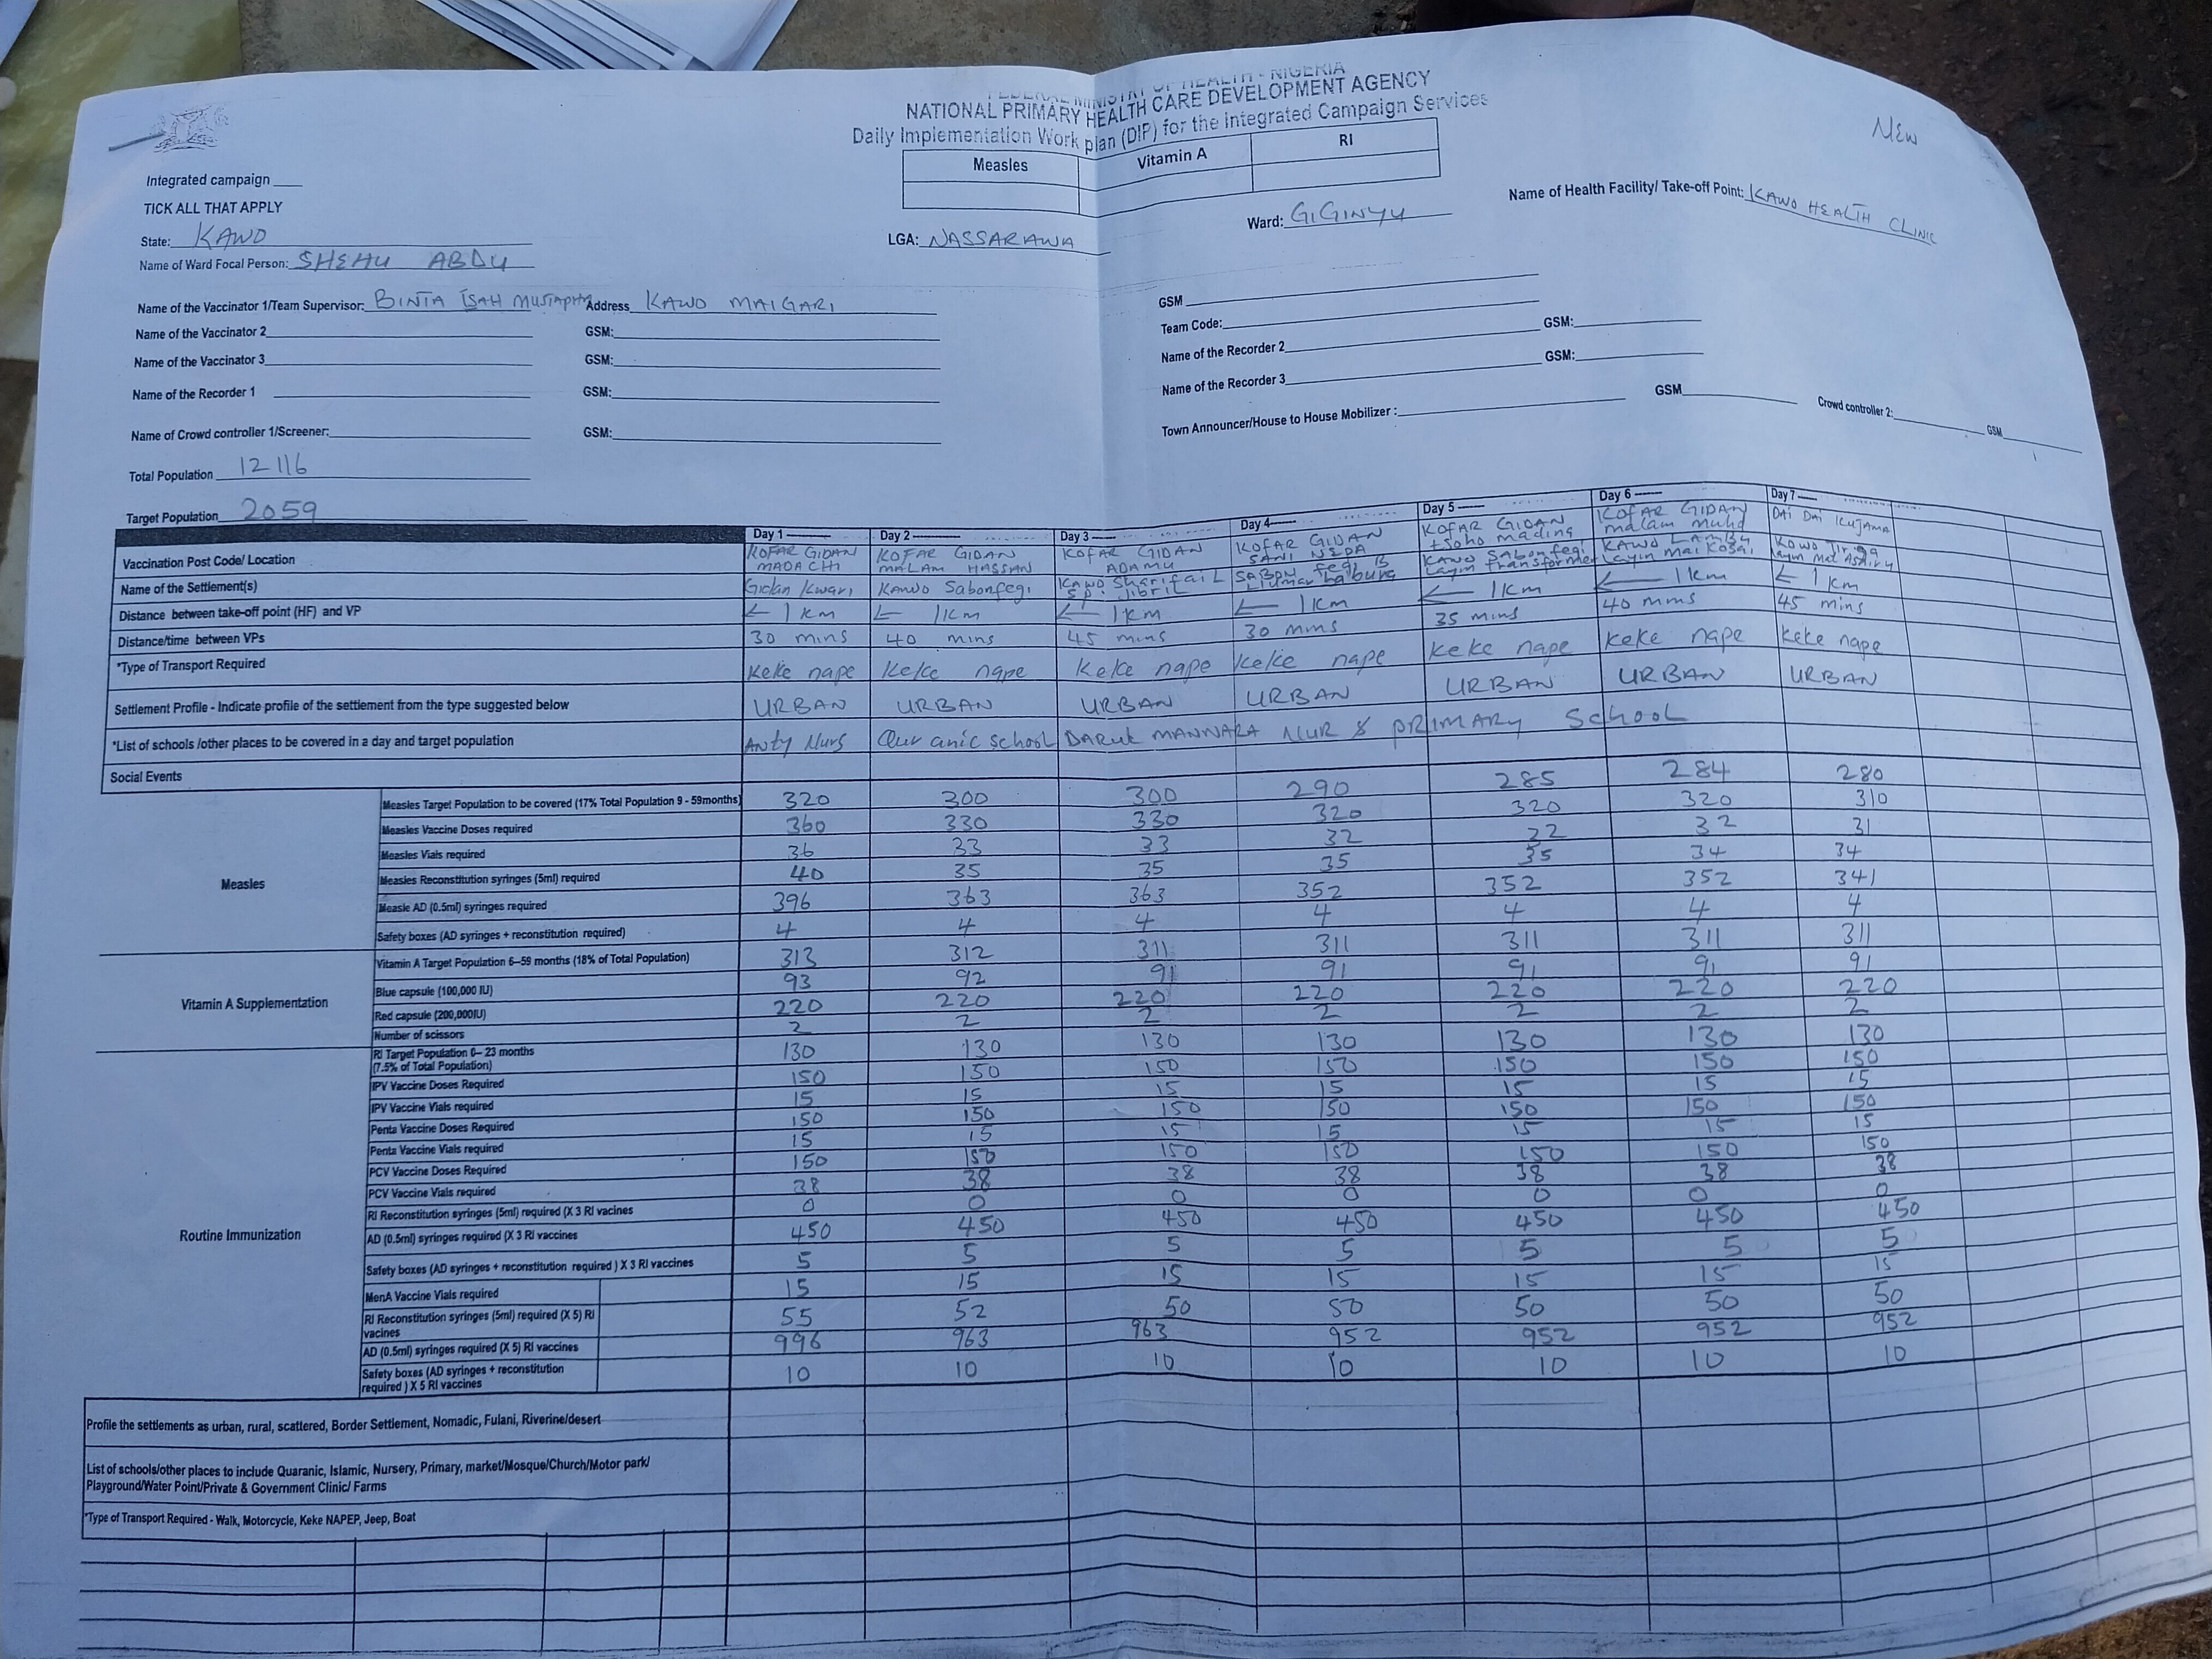 NATIONAL PRIMARY HEALTH CARE DEVELOPMENT AGENCY
Daily Implementation Work plan (DIP) for the Integrated Campaign Services
NEW
Integrated campaign
TICK ALL THAT APPLY
Measles Vitamin A RI
State: KANO LGA: NASSARAWA Ward: GIGINYU Name of Health Facility/ Take-off Point: KAWO HEALTH CLINIC
Name of Ward Focal Person: SHEHU ABDU GSM
Name of the Vaccinator 1/Team Supervisor: BINTA ISAH MUSTAPHA Address KAWO MAIGARI
Name of the Vaccinator 2 GSM: Team Code: GSM:
Name of the Vaccinator 3 GSM: Name of the Recorder 2 GSM:
Name of the Recorder 1 GSM: Name of the Recorder 3 GSM
Name of Crowd controller 1/Screener: GSM: Town Announcer/House to House Mobilizer : Crowd controller 2: GSM
Total Population 12116
Target Population 2059
Day 1 Day 2 Day 3 Day 4 Day 5 Day 6 Day 7
Vaccination Post Code/ Location KOFAR GIDAN MADACHI KOFAR GIDAN MALAM HASSAN KOFAR GIDAN ADAMU KOFAR GIDAN SANI NEPA KOFAR GIDAN KOFAR GIDAN malam muhd DAI DAI
Name of the Settlement(s) Gidan Kwari Kawo Sabonfegi Kawo KAWO Sabonfegi KAWO
Distance between take-off point (HF) and VP ← 1km ← 1km ← 1km ← 1km ← 1km ← 1km ← 1km
Distance/time between VPs 30 mins 40 mins 45 mins 30 mins 35 mins 40 mins 45 mins
*Type of Transport Required Keke nape Keke nape Keke nape Keke nape Keke nape Keke nape Keke nape
Settlement Profile - Indicate profile of the settlement from the type suggested below URBAN URBAN URBAN URBAN URBAN URBAN URBAN
*List of schools /other places to be covered in a day and target population Anty Nurs Qur'anic school DARUL MANNARA NUR & PRIMARY School
Social Events
Measles
Measles Target Population to be covered (17% Total Population 9 - 59months) 320 300 300 290 285 284 280
Measles Vaccine Doses required 360 330 330 320 320 320 310
Measles Vials required 36 33 33 32 22 32 31
Measles Reconstitution syringes (5ml) required 40 35 35 35 35 34 34
Measle AD (0.5ml) syringes required 396 363 363 352 352 352 341
Safety boxes (AD syringes + reconstitution required) 4 4 4 4 4 4 4
Vitamin A Supplementation
Vitamin A Target Population 6-59 months (18% of Total Population) 313 312 311 311 311 311 311
Blue capsule (100,000 IU) 93 92 91 91 91 91 91
Red capsule (200,000IU) 220 220 220 220 220 220 220
Number of scissors 2 2 2 2 2 2 2
Routine Immunization
RI Target Population 6- 23 months (7.5% of Total Population) 130 130 130 130 130 130 130
IPV Vaccine Doses Required 150 150 150 150 150 150 150
IPV Vaccine Vials required 15 15 15 15 15 15 15
Penta Vaccine Doses Required 150 150 150 150 150 150 150
Penta Vaccine Vials required 15 15 15 15 15 15 15
PCV Vaccine Doses Required 150 150 150 150 150 150 150
PCV Vaccine Vials required 38 38 38 38 38 38 38
RI Reconstitution syringes (5ml) required (X 3 RI vacines 0 0 0 0 0 0 0
AD (0.5ml) syringes required (X 3 RI vaccines 450 450 450 450 450 450 450
Safety boxes (AD syringes + reconstitution required ) X 3 RI vaccines 5 5 5 5 5 5 5
MenA Vaccine Vials required 15 15 15 15 15 15 15
RI Reconstitution syringes (5ml) required (X 5) RI vacines 55 52 50 50 50 50 50
AD (0.5ml) syringes required (X 5) RI vaccines 996 963 963 952 952 952 952
Safety boxes (AD syringes + reconstitution required ) X 5 RI vaccines 10 10 10 10 10 10 10
Profile the settlements as urban, rural, scattered, Border Settlement, Nomadic, Fulani, Riverine/desert
List of schools/other places to include Quranic, Islamic, Nursery, Primary, market/Mosque/Church/Motor park/
Playground/Water Point/Private & Government Clinic/ Farms
*Type of Transport Required - Walk, Motorcycle, Keke NAPEP, Jeep, Boat